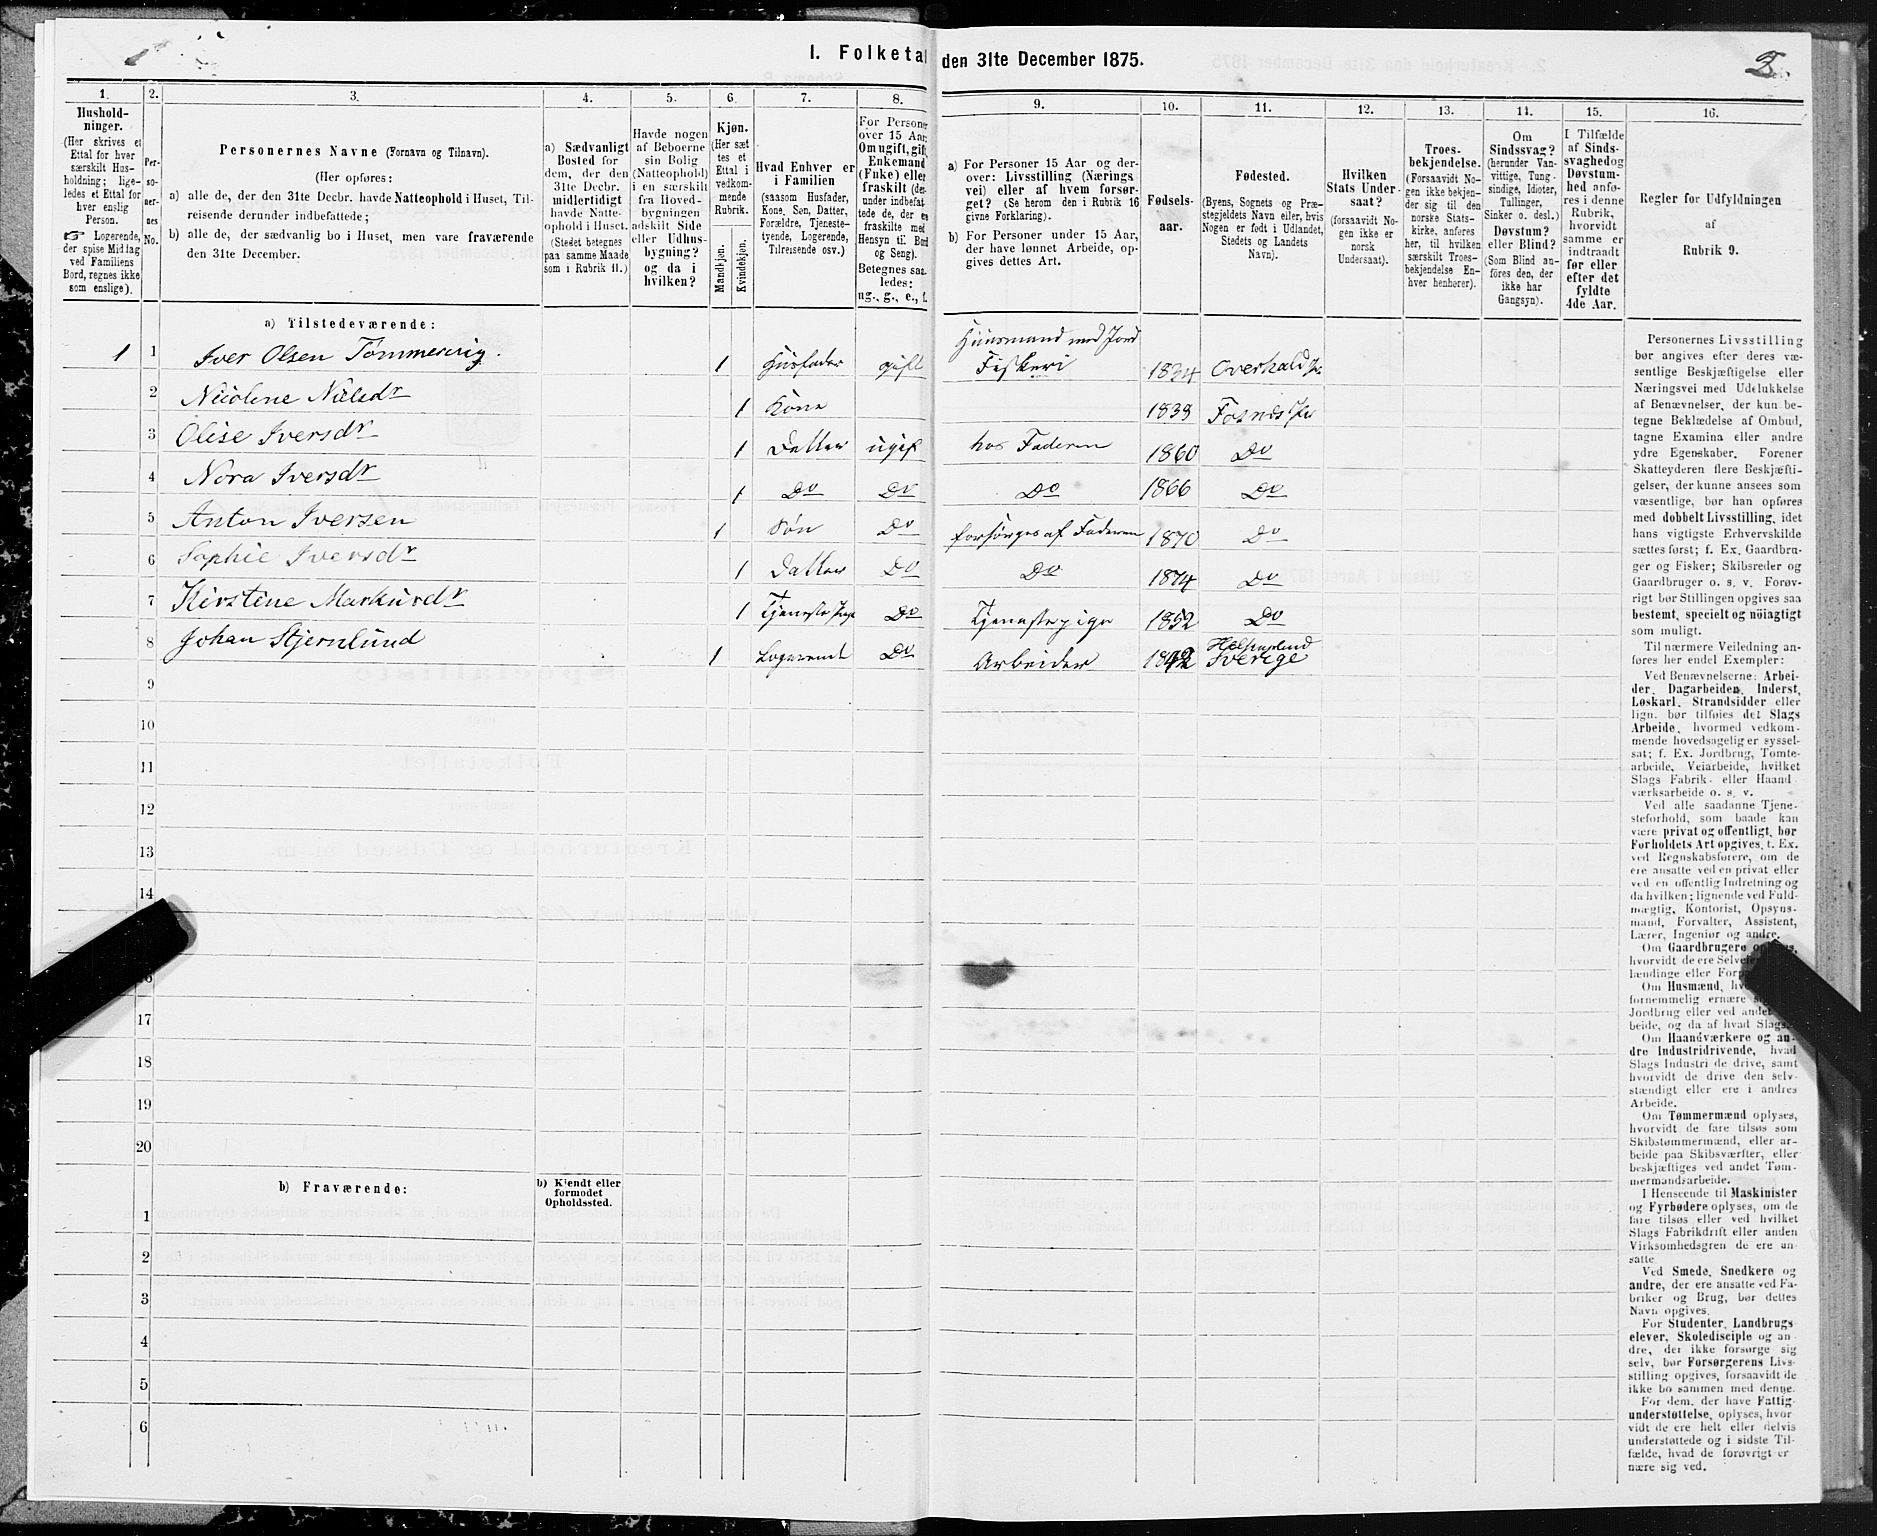 I. Folketal den 31te December 1875.
1. 2. 3. 4. 5. 6. 7. 8. 9. 10. 11. 12. 13. 14. 15. 16.
Hushold-
ninger.
(Her skrives et
Ettal for hver
særskilt Hus-
holdning; lige-
ledes et Ettal for
hver enslig
Person.
☞ Logerende,
der spise Middag
ved Familiens
Bord, regnes ikke
som enslige).
Per-
so-
ner-
nes
No.
Personernes Navne (Fornavn og Tilnavn).
(Her opføres:
a) alle de, der den 31te Decbr. havde Natteophold i Huset, Til-
reisende derunder indbefattede;
b) alle de, der sædvanlig bo i Huset, men vare fraværende
den 31te December.
a) Sædvanligt
Bosted for
dem, der den
31te Decbr.
midlertidigt
havde Natte-
ophold i Huset.
(Stedet betegnes
paa samme Maade
som i Rubrik 11.)
Havde nogen
af Beboerne
sin Bolig
(Natteophold)
i en særskilt
fra Hoved-
bygningen
adskilt Side-
eller Udhus-
bygning?
og da i
hvilken?
Kjøn.
(Her sæt-
tes et
Ettal i
vedkom-
mende
Rubrik.
Mandkjøn.
Kvindekjøn.
Hvad Enhver er
i Familien
(saasom Husfader,
Kone, Søn, Datter,
Forældre, Tjeneste-
tyende, Logerende,
Tilreisende osv.)
For Personer
over 15 Aar:
Om ugift, gift,
Enkemand
(Enke) eller
fraskilt (der-
under indbefat-
tede de, der ere
fraskilte med
Hensyn til Bord
og Seng).
Betegnes saa-
ledes:
ug., g., e., f.
a) For Personer 15 Aar og der-
over: Livsstilling (Nærings-
vei) eller af hvem forsør-
get? (Se herom den i Rubrik 16
givne Forklaring).
b) For Personer under 15 Aar,
der have lønnet Arbeide, op-
gives dettes Art.
Fødsels-
aar.
Fødested.
(Byens, Sognets og Præ-
stegjeldets Navn eller, hvis
Nogen er født i Udlandet,
Stedets og Landets
Navn).
Hvilken
Stats Under-
saat?
(forsaavidt No-
gen ikke er
norsk
Undersaat).
Troes-
bekjendelse.
(Forsaavidt No-
gen ikke bekjen-
der sig til den
norske Stats-
kirke, anføres
her, til hvilken
særskilt Troes-
bekjendelse En-
hver henhører).
Om
Sindssvag?
(herunder Van-
vittige, Tung-
sindige, Idioter,
Tullinger,
Sinker o. desl.)
Døvstum?
eller Blind?
(Som Blind an-
føres den, der
ikke har
Gangsyn).
I Tilfælde
af Sinds-
svaghed og
Døvstum-
hed anfø-
res i denne
Rubrik,
hvorvidt
samme er
indtraadt
før eller
efter det
fyldte
4de Aar.
Regler for Udfyldningen
af
Rubrik 9.
a) Tilstedeværende:
1 1 Iver Olsen Tømmervig. 1 Husfader gift Huusmand med Jord Fiskeri 1834 Overhald
2 Nicoline Nilsdr 1 Kone 1838 Fosnes
3 Olise Iversdr 1 Datter ugift hos Faderen 1860 Do
4 Nora Iversdr 1 Do Do Do 1866 Do
5 Anton Iversen 1 Søn Do forsørges af Faderen 1870 Do
6 Sophie Iversdr 1 Datter Do Do 1874 Do
7 Kirstine Markusdr 1 Do Tjenestepige 1852 Do
8 Johan Stjernlund 1 Logerende Do Arbeider Sverige
9
10
11
12
13
14
16
17
18
19
20
b) Fraværende:
b) Kjendt eller
formodet
Opholdssted.
1
2
3
4
5
6
Personernes Livsstilling
bør angives efter deres væ-
sentlige Beskjæftigelse eller
Næringsvei med Udelukkelse
af Benævnelser, der kun be-
tegne Beklædelse af Ombud,
tagne Examina eller andre
ydre Egenskaber. Forener
Skatteyderen flere Beskjæfti-
gelser, der kunne ansees som
væsentlige, bør han opføres
med dobbelt Livsstilling, idet
hans vigtigste Erhvervskilde
sættes først; f. Ex. Gaardbru-
ger og Fisker; Skibsreder og
Gaardbruger o. s. v. Forøv-
rigt bør Stillingen opgives saa
bestemt, specielt og nøiagtigt
som muligt.
Til nærmere Veiledning an-
føres her endel Exempler:
Ved Benævnelserne: Arbei-
der, Dagarbeider, Inderst,
Løskarl, Strandsidder eller
lign. bør tilføies det Slags
Arbeide, hvormed vedkom-
mende hovedsagelig er syssel-
sat; f. Ex. Jordbrug, Tomte-
arbeide, Veiarbeide, hvilket
Slags Fabrik- eller Haand-
værksarbeide o. s. v.
Ved alle saadanne Tjene-
steforhold, som baade kan
være privat og offentligt, bør
Forholdets Art opgives, f. Ex.
ved Regnskabsførere, om de
ere ansatte ved en privat eller
ved en offentlig Indretning og
da hvilken; lignende ved Fuld-
mægtig, Kontorist, Opsyns-
mand, Forvalter, Assistent,
Lærer, Ingeniør og andre.
Om Gaardbrugere
hvorvidt de ere
lændinge eller
Om Husmænd,
fornemmelig ernære
Jordbrug eller ved andet
beide, og da af hvad Slags.
Om Haandværkere og an-
dre Industridrivende, hvad
Slags Industri de drive, samt
hvorvidt de drive den selv-
stændigt eller ere i andres
Arbeide.
Om Tømmermænd oplyses,
hvorvidt de fare tilsøs som
Skibstømmermænd, eller ar-
beide paa Skibsværfter, eller
beskjæftiges ved andet Tøm-
mermandsarbeide.
I Henseende til Maskinister
og Fyrbødere oplyses, om de
fare tilsøs eller ved hvilket
Slags Fabrikdrift eller anden
Virksomhedsgren de ere an-
satte.
Ved Smede, Snedkere og
andre, der ere ansatte ved Fa-
briker og Brug, bør dettes
Navn opgives.
For Studenter, Landbrugs-
elever, Skoledisciple og an-
dre, der ikke forsørge sig
selv, bør Forsørgerens Livs-
stilling opgives, forsaavidt de
ikke bo sammen med denne.
For dem, der have Fattig-
understøttelse, oplyses, hvor-
vidt de ere helt eller delvis
understøttede og i sidste Til-
fælde, hvad de forøvrigt er-
nære sig ved.